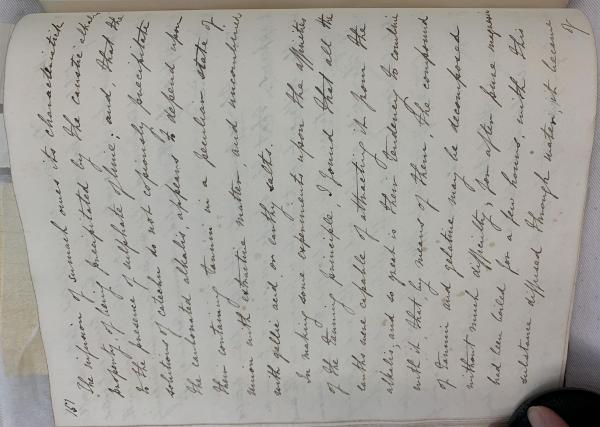 167
The infusion of sumach owes its characteristick
property, of being precipitated by the caustic alkalis,
to the presence of sulphate of lime; and, that the
solutions of catechu do not copiously precipitate
the carbonated alkalis, appears to depend upon
their containing tannin in a peculiar state of
union with extractive matter, and uncombined
with gallic acid or earthy salts.
In making some experiments upon the affinities
of the tanning principle, I found that all the
earths were capable of attracting it from the
alkalis; and so great is their tendency to combine
with it that, by means of them, the compound
of tannin and gelatine may be decomposed
without much difficulty; for after pure magnesia
had been boiled for a few hours, with this
substance diffused through water, it became
of